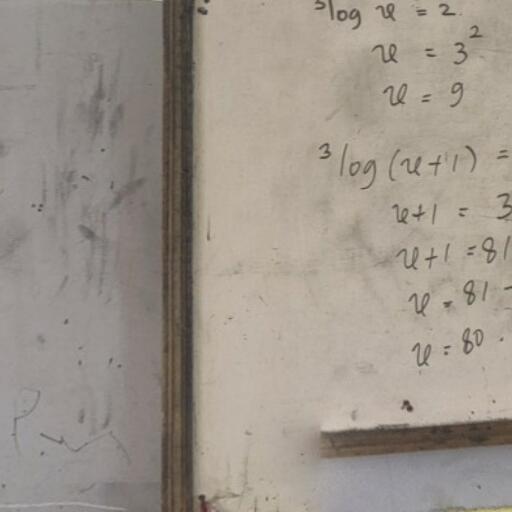 ³log x = 2
x = 3²
x = 9
³log (x+1) =
x+1 = 3
x+1 = 81
x = 81 -
x = 80.